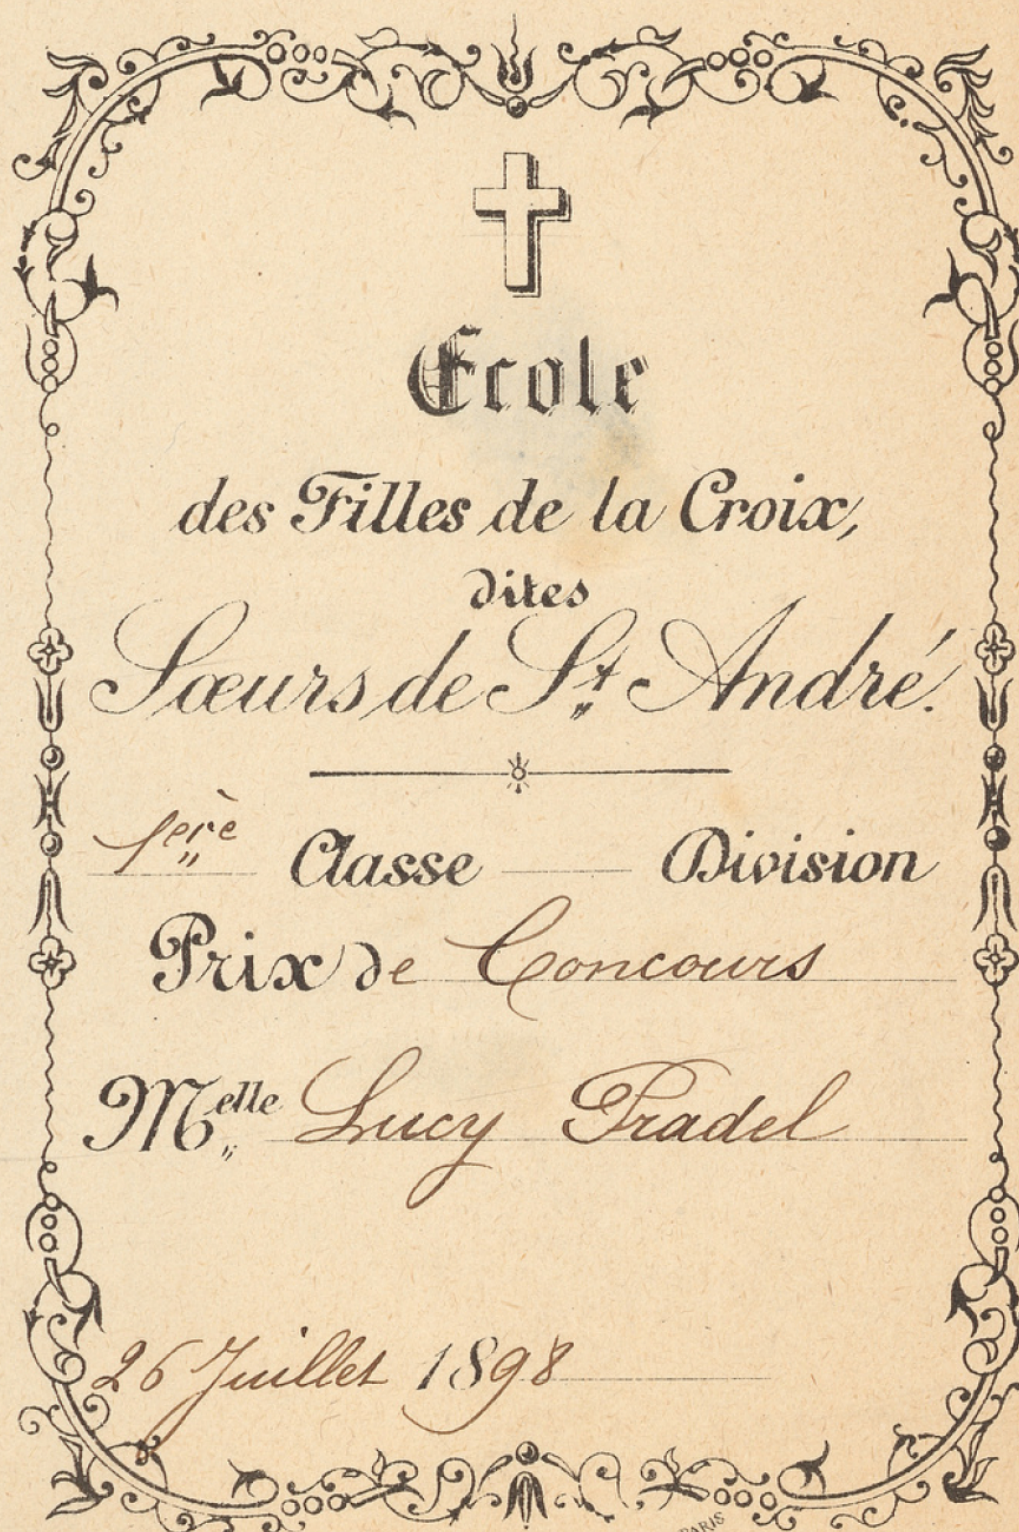 École
des Filles de la Croix,
dites
Sœurs de St. André.
1ère Classe Division
Prix de Concours
Melle Lucy Pradel
26 Juillet 1898
PARIS